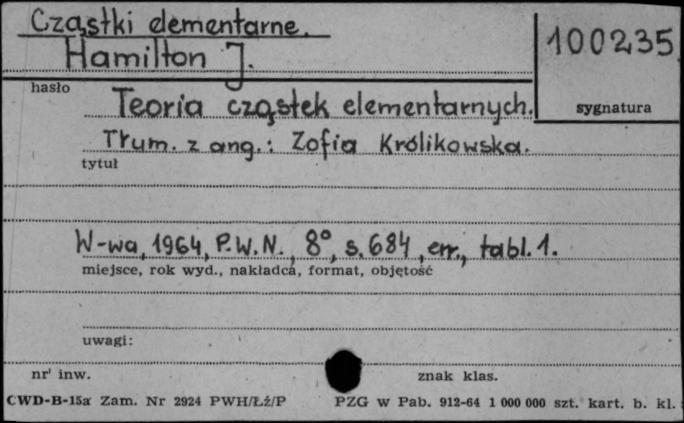 Cząstki elementarne.
Hamilton J.
100235
hasło
Teoria cząstek elementarnych.
sygnatura
Tłum. z ang.: Zofia Królikowska.
tytuł
W-wa, 1964, P.W.N., 8°, s. 684, err., tabl. 1.
miejsce, rok wyd., nakładca, format, objętość
uwagi:
nr' inw.
znak klas.
CWD-B-15a Zam. Nr 2924 PWH/Łź/P PZG w Pab. 912-64 1 000 000 szt. kart. b. kl.